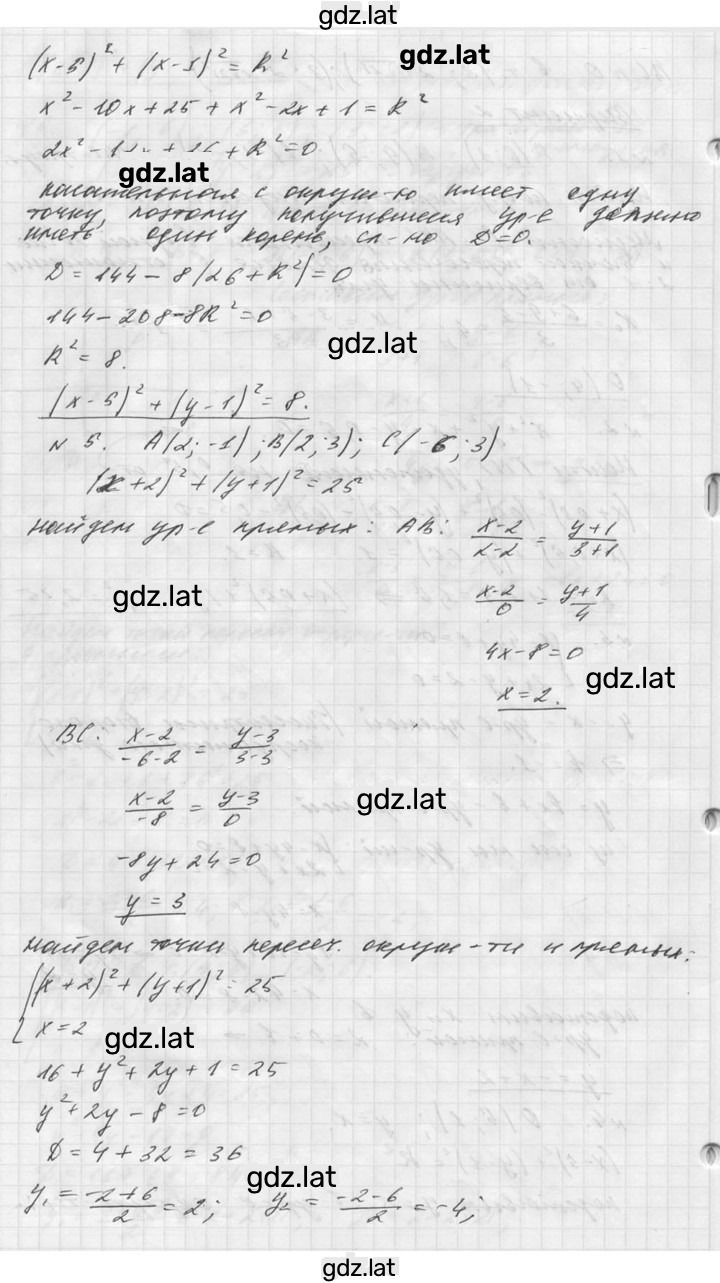 gdz.lat
(x-5)² + (x-1)² = R²
gdz.lat
x² - 10x + 25 + x² - 2x + 1 = R²
+ R² = 0
gdz.lat
касательная с окруж-ю имеет одну
точку, поэтому получившееся ур-е должно
иметь один корень, сл-но D=0.
D = 144 - 8(26 + R²) = 0
144 - 208 - 8R² = 0
gdz.lat
R² = 8.
(x-5)² + (y-1)² = 8.
N 5. A(2; -1); B(2; 3); C(-6; 3)
(x+2)² + (y+1)² = 25
найдем ур-е прямых: AB: (x-2)/(2-2) = (y+1)/(3+1)
gdz.lat
(x-2)/0 = (y+1)/4
4x - 8 = 0
gdz.lat
x = 2.
BC: (x-2)/(-6-2) = (y-3)/(3-3)
(x-2)/-8 = (y-3)/0
gdz.lat
-8y + 24 = 0
y = 3
найдем точки пересеч. окруж-ти и прямых:
(x+2)² + (y+1)² = 25
x = 2
gdz.lat
16 + y² + 2y + 1 = 25
y² + 2y - 8 = 0
D = 4 + 32 = 36
gdz.lat
y₁ = (-2+6)/2 = 2; y₂ = (-2-6)/2 = -4;
gdz.lat